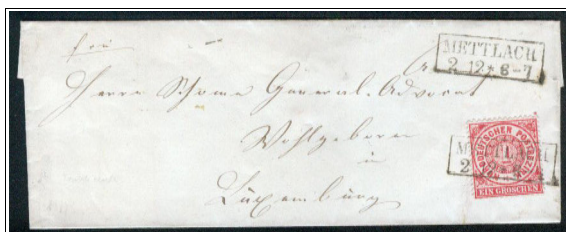 frei
METTLACH
2 12 * 6-7
Herrn General-Advocat
Wohlgeboren
in
Luxemburg
DEUTSCHER POSTBEZIRK
1
EIN GROSCHEN